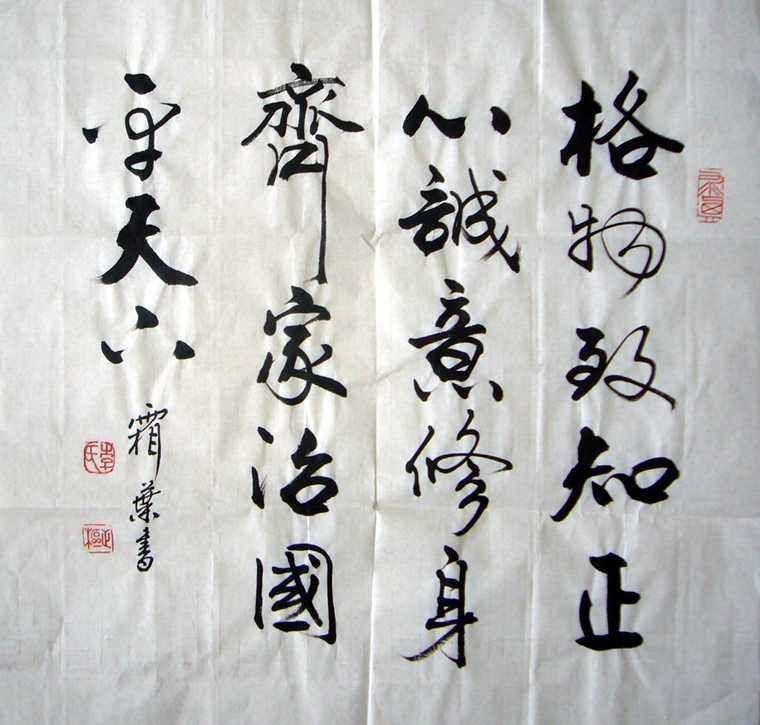 格物致知正
心誠意修身
齊家治國
平天下
霜葉書
李氏